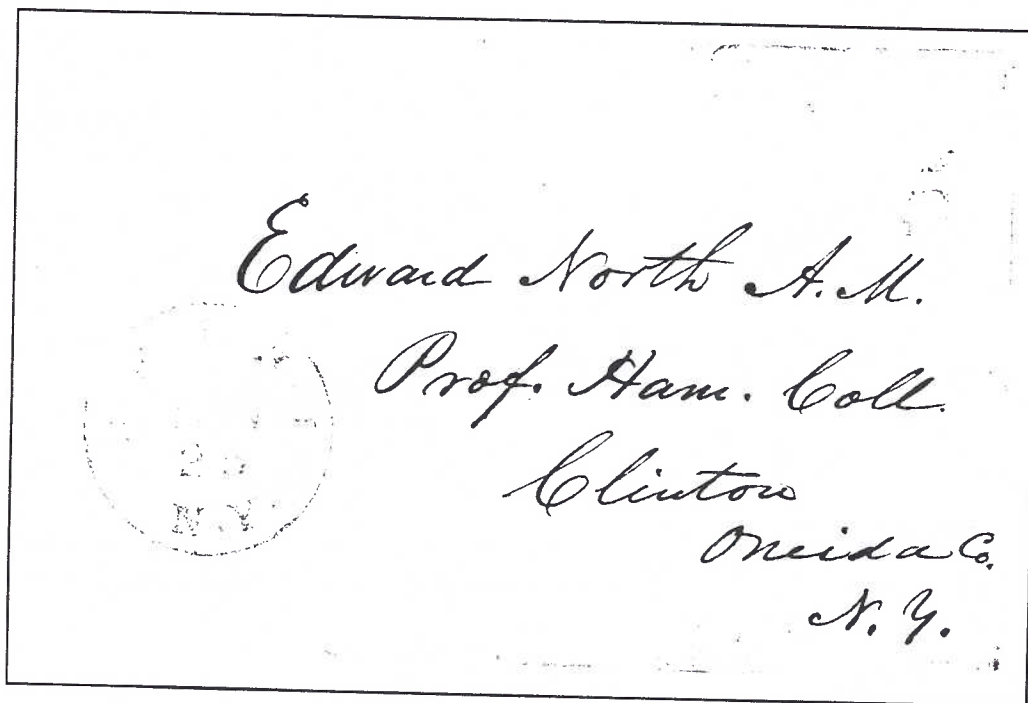 Edward North A.M.
Prof. Ham. Coll.
Clinton
Oneida Co.
N.Y.
N.Y.